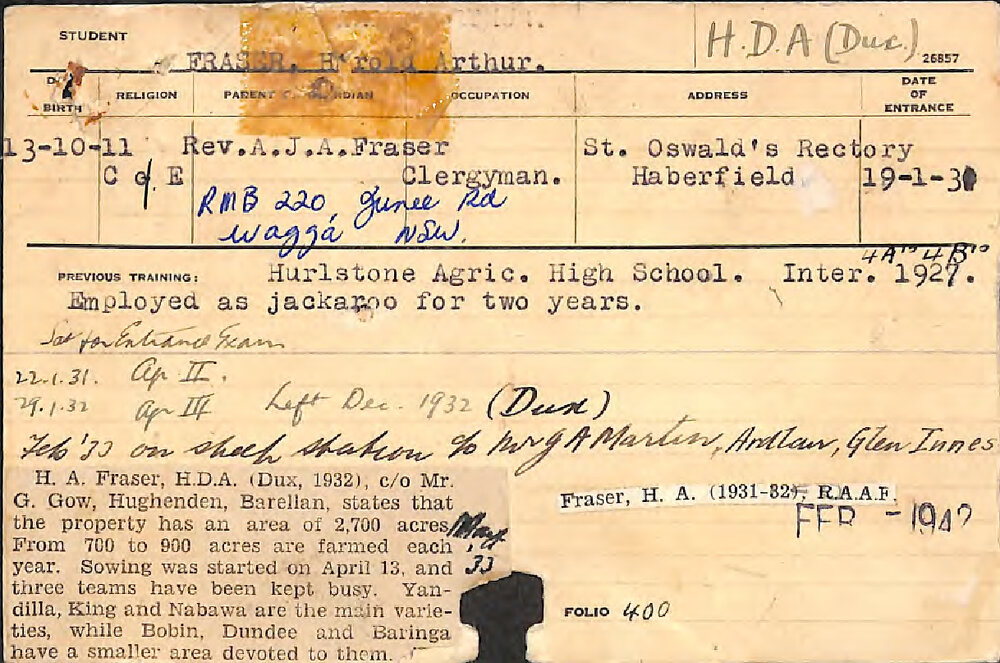 STUDENT
H.D.A (Dux.)
26857
FRASER, Harold Arthur.
BIRTH
RELIGION
PARENT
OCCUPATION
ADDRESS
DATE OF ENTRANCE
13-10-11 Rev.A.J.A.Fraser St. Oswald's Rectory
C of E Clergyman. Haberfield 19-1-31
RMB 220, Junee Rd
Wagga NSW.
4A's 4B's
PREVIOUS TRAINING: Hurlstone Agric. High School. Inter. 1927.
Employed as jackaroo for two years.
Sat for Entrance Exam
22.1.31. Ap II.
29.1.32 Ap III Left Dec. 1932 (Dux)
Feb '33 on sheep station c/o Mr G A Martin, Glen Innes
H. A. Fraser, H.D.A. (Dux, 1932), c/o Mr.
G. Gow, Hughenden, Barellan, states that
the property has an area of 2,700 acres
From 700 to 900 acres are farmed each
year. Sowing was started on April 13, and
three teams have been kept busy. Yan-
dilla, King and Nabawa are the main varie-
ties, while Bobin, Dundee and Baringa
have a smaller area devoted to them.
33
Fraser, H. A. (1931-32), R.A.A.F.
FEB -1942
FOLIO 400